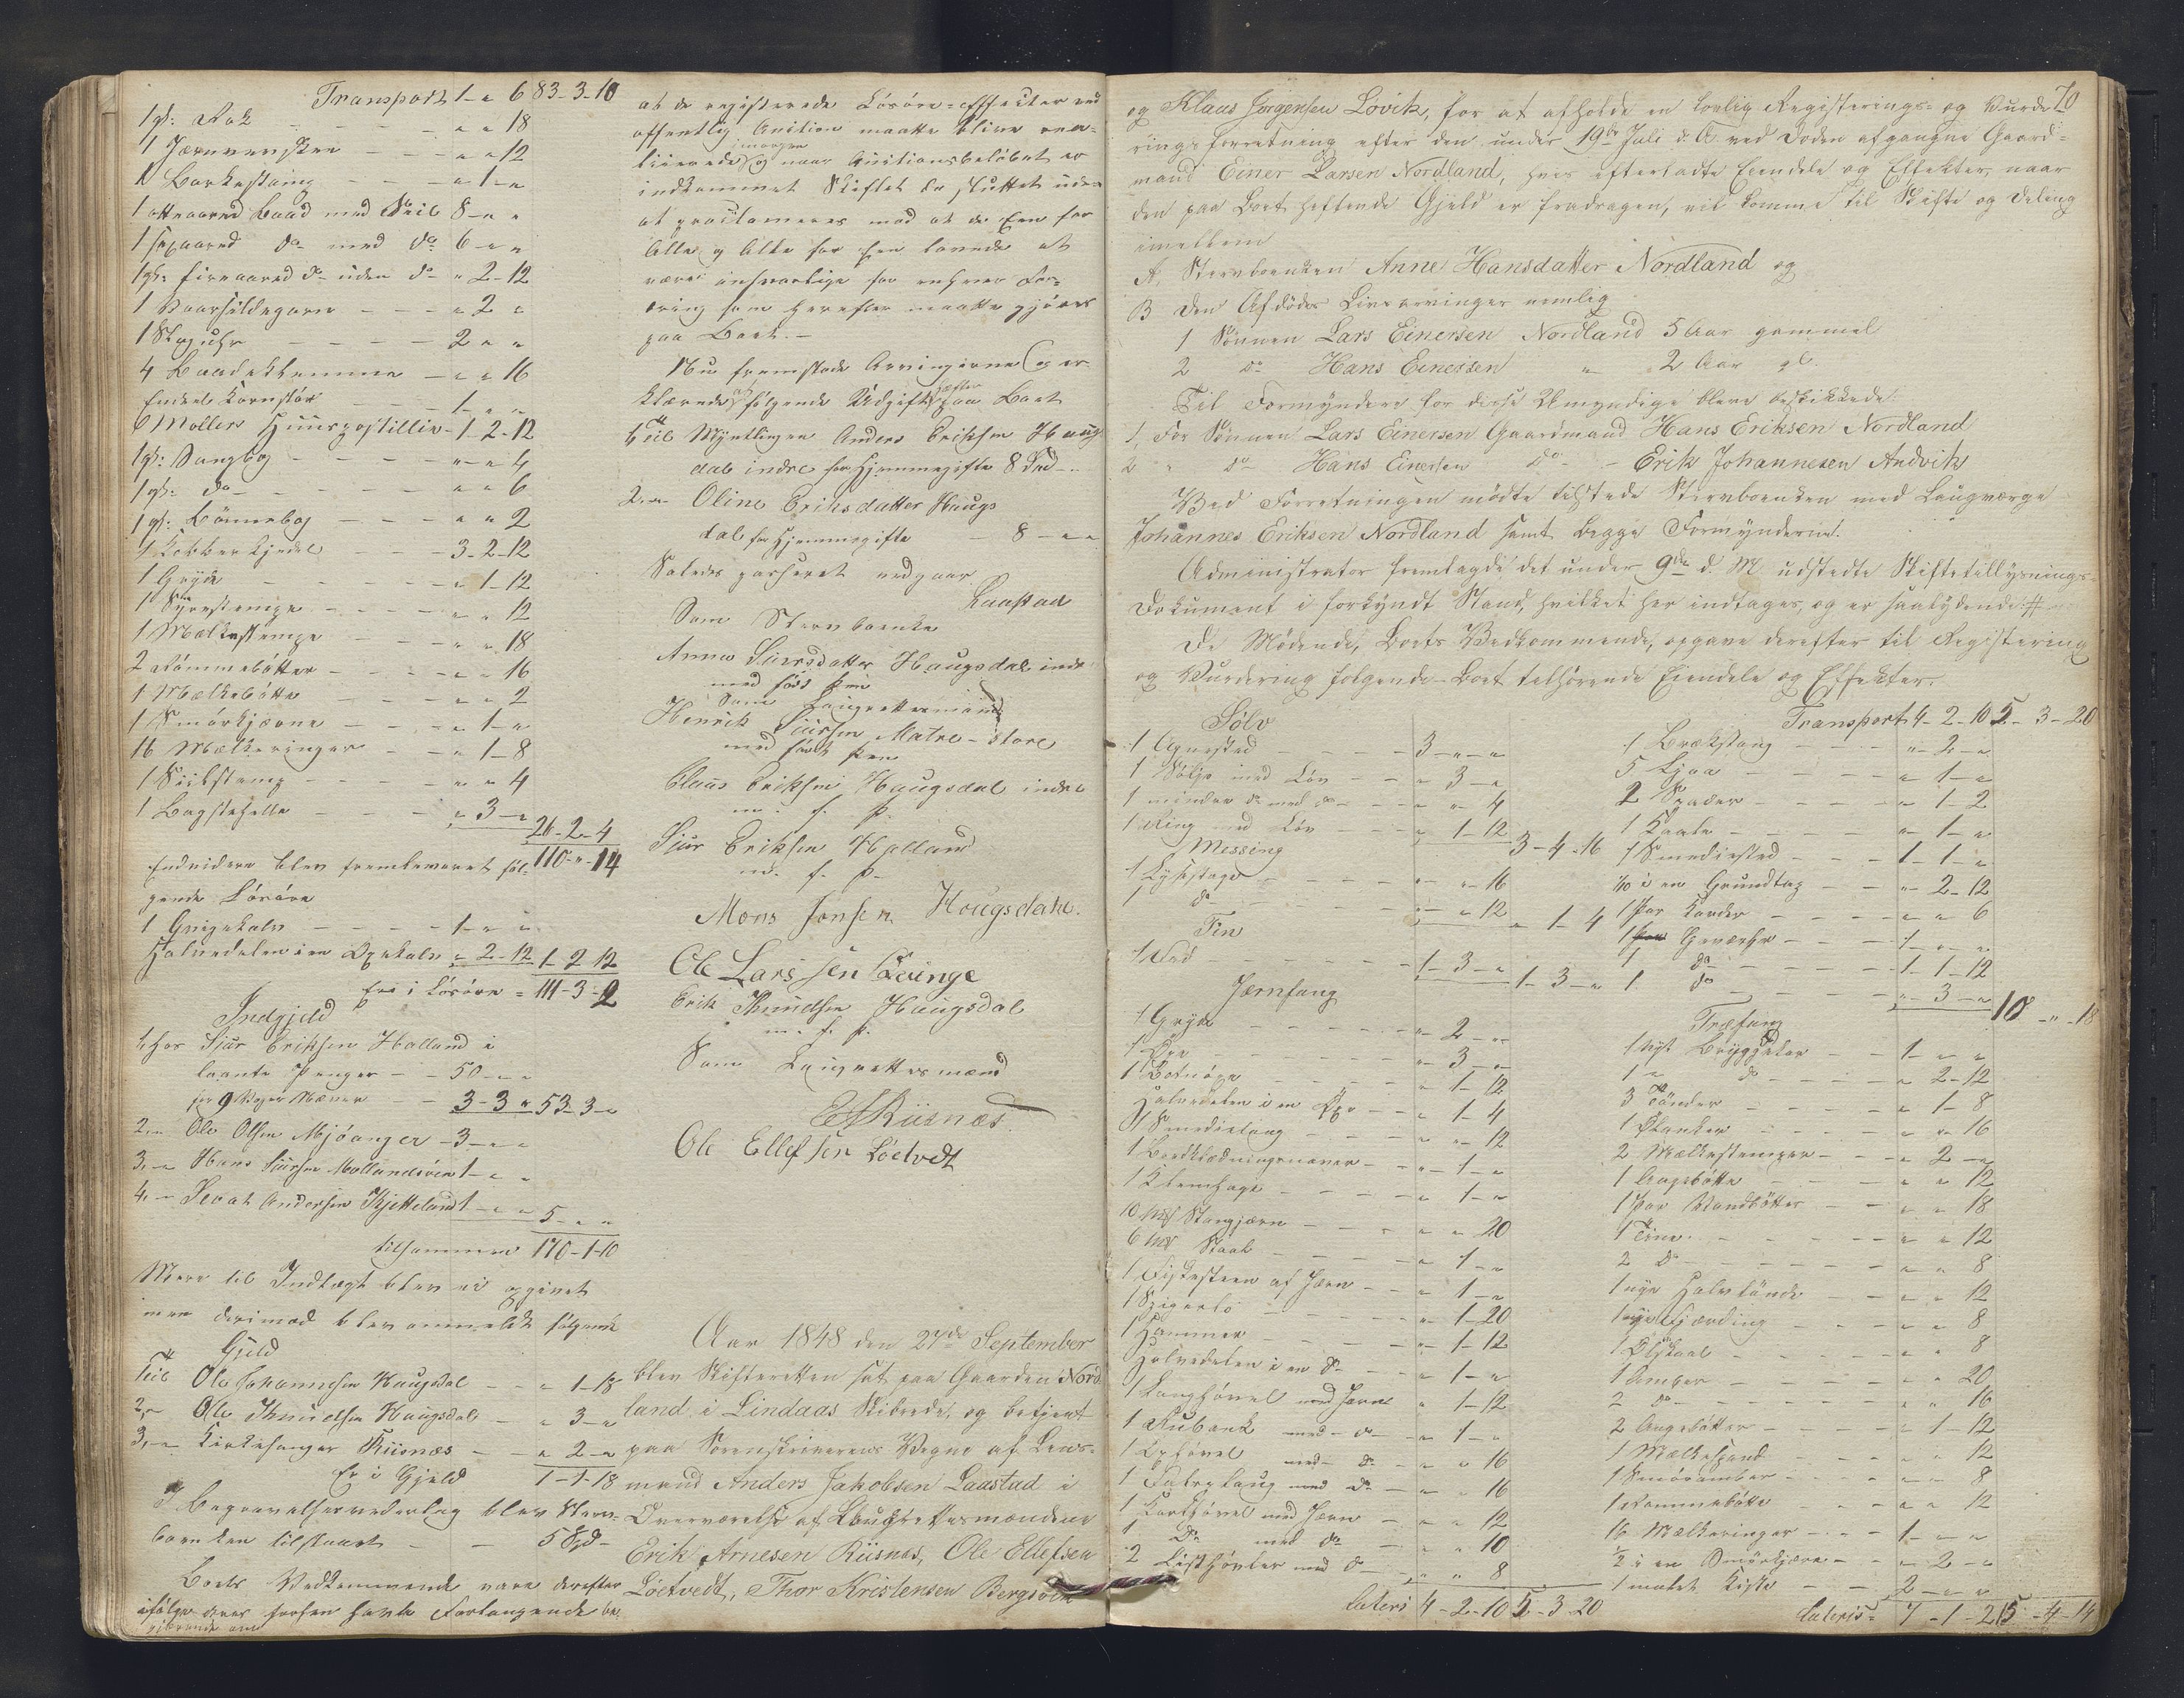 Transport 1 - " 6 83-3-10
1 gl: Rok - - - - " " 18
1 Jærnvensker - - - " " 12
1 Barkestamp - - " 1 - "
1 ottaared Baad med Seil 8 - " "
1 sexaared do med do 6 - " "
1 gl: fireaared do uden do " 2-12
1 Vaarsildegarn - - - " 2 "
1 Stueuhr - - - 2 " "
4 Baadeklemmer - " " 16
Endeel Kornstør - - 1 - " "
6 Møllers Huuspostille - 1-2-12
1 gl: Sangbog - - - " " 4
1 gl: do - - - " " 6
1 gl: Bønnebog - - - " " 2
1 Kobberkjedel - - - 3-2-12
1 Gryde - - - - " 1-12
1 Syrestampe - - - " " 12
1 Mælkestampe - - - " " 18
2 Rømmebøtter - - - " " 16
1 Mælkebøtte - - - " " 2
1 Smørkjærne - - - " 1 - "
16 Mælkeringer - - " 1-8
1 Siilstamp - - - " " 4
1 Bagstehelle - - - " 3 - " 26-2-4
Endvidere blev fremleveret føl- 110-"-14
gende Løsøre
1 Gvigekalv - - - 1 - " "
Halvedelen i en Oxekalv " 2-12 1-2-12
Er i Løsøre = 111-3-2
Indgjeld
1, hos Siur Eriksen Holland i
laante Penger - - 50 - " "
for 9 Voger Næver - - 3-3 " 53-3-"
2, - Ole Olsen Mjøanger - 3 - " "
3, - Hans Siursen Mollandsøen 1 - " "
4, - Ivar Andersen Kjetteland 1 - " " 5 - " "
tilsammen 170-1-10
Mere til Indtægt blev ei opgivet
men derimod blev anmeldt følgende
Gjeld
Til Ole Johannesen Haugsdal - - " 1-18
2, - Ole Knudsen Haugsdal - " 3 - "
3, - Kirkesanger Riisnæs - - " 2 - "
Er i Gjeld 1-1-18
I Begravelsesvederlag blev Sterv-
boenken tilstaaet - - 5 Spd -
Boets Vedkommende vare derefter
ifølge deres forhen havte Forlangende be-
gjærende om
at de registerede Løsøre-effecter ved
offentlig Auction maatte blive rea-
liserede imorgen og naar Auctionsbeløbet er
indkommet Skiftet da sluttet uden
at proclameres mod at de Een for
Alle og Alle for Een lovede at
være ansvarlige for enhver For-
dring som herefter maatte gjøres
paa Boet. -
Nu fremstode Arvingerne og er-
klærede at følgende Udgift hæfter paa Boet
1, til Myntlingen Anders Eriksen Haugs
dal indre for Hjemmegifte 8 Spd - "
2, - Oline Eriksdatter Haugs
dal for Hjemmegifte - 8 - " "
Saledes passeret vedgaar
Laastad
Som Stervboenke
Anna Siursdatter Haugsdal indr
med ført Pen
Som Laugrettesmænd
Henrik Siursen Matre-store
med ført Pen
Claus Eriksen Haugsdal indre
m. f. P.
Siur Eriksen Holland
m. f. P.
Mons Jonsen Hougsdahl.
Ole Larsen Qvinge
Erik Knudsen Haugsdal
m. f. P.
Som Laugrettesmænd
E A Riisnæs.
Ole Ellefsen Løetvedt
Aar 1848 den 27de September
blev Skifteretten sat paa Gaarden Nord
land i Lindaas Skibrede, og betjent
paa Sorenskriverens Vegne af Lens-
mand Anders Jakobsen Laastad i
Overværelse af Laugrettesmændene
Erik Arnesen Riisnæs, Ole Ellefsen
Løetvedt, Thor Kristensen Bergsvik
70
og Klaus Jørgensen Løvik, for at afholde en lovlig Registerings- og Vurde-
ringsforretning efter den under 19de Juli d. A. ved Døden afgangne Gaard-
mand Einer Larsen Nordland, hvis efterladte Eiendele og Effekter, naar
den paa Boet heftende Gjæld er fradragen, vil komme til Skifte og Deling
imellem
A, Stervboenken Anne Hansdatter Nordland og
B Den Afdødes Livsarvinger nemlig
1 Sønnen Lars Einersen Nordland 5 Aar gammel
2 do Hans Einersen " 2 Aar gl.
Til Formyndere for disse Umyndige bleve beskikkede:
1, For Sønnen Lars Einersen Gaardmand Hans Eriksen Nordland
2 " do Hans Einersen do - Erik Johannesen Andvik
Ved Forretningen mødte tilstede Stervboenken med Laugværge
Johannes Eriksen Nordland samt begge Formynderne.
Administrator fremlagde det under 9de d. M. udstedte Skiftetillysnings-
Dokument i forkyndt Stand, hvilket her indtages, og er saalydende: #
De Mødende, Boets Vedkommende, opgave derefter til Registering
og Vurdering følgende Boet tilhørende Eiendele og Effekter.
Sølv
1 Agnestad - - - - 3 - " "
1 Sølje med Løv - - " 3 - "
1 mindre do med do - - " " 4
1 Ring med Løv - - " 1-12 3-4-16
Messing
1 Lysestage - - - " " 16
1 do - - - " " 12 " 1-4
Tin
1 Fad - - - - 1-3-" 1-3-"
Jærnfang
1 Gryde - - - - " 2 - "
1 Øxe - - - - " 3 - "
1 Botnøxe - - - " 1-12
Halvedelen i en Øxe - - " 1-4
1 Smedietang - - - " " 12
1 Bordklædningsnaver - - " 1 - "
1 Klemhage - - - " 1 - "
10 Mk Stangjærn - - - " " 20
6 Mk Staal - - - " 1 - "
1 Fiskesteen af Jærn - - " 1 - "
1 Spigerlo - - - " 1-20
1 Hammer - - - " 1-12
Halvedelen i en do - - " 1 - "
1 Langhøvel med Jærn " 1-12
1 Rubank med do - " 1 - "
1 Ophøvel med do - " " 16
1 Falsplaug med do - " " 16
1 Korthøvel med Jærn - " " 12
1 do med do - " " 10
2 Listhøvler med do - " " 8
Lateris 4-2-10 5-3-20
Transport 4-2-10 5-3-20
1 Brækstang - - - " 2 - "
5 Ljaa - - - " 1 - "
2 Spader - - - " 1-2
1 Kaale - - - " 1 - "
1 Smediested - - - 1-1-"
1/10 i en Grundtag - - " 2-12
1 Par Karder - - - " " 6
1 Geværhr - - - 1 - " "
1 do - - - - 1-1-12
1 do - - - - " 3 - " 10-"-18
Træfang
1 nyt Bryggekar - - 1 - " "
1 " do - - - " 2-12
3 Tønder - - - " 1-8
1 Ølanker - - - " " 16
2 Mælkestamper - - " 2 - "
1 Augebøtte - - - " " 12
1 Par Vandbøtter - - " " 18
1 Tine - - - - " " 12
2 do - - - - " " 8
1 nye Halvtønde - - " " 12
1 nye Fjærding - - " " 8
1 Ølskaal - - - " " 8
1 Ambar - - - " " 20
2 do - - - - " " 16
2 Augebøtter - - - " 1-12
1 Mælkespand - - - " " 12
1 Smørambar - - - " " 8
1 Rømmebøtte - - - " " 12
16 Mælkeringer - - 1 - " "
1/2 i en Smørkjærne - - " 2 - "
1 malet Kiste - - 2 - " "
Lateris 7-1-2 15-4-14